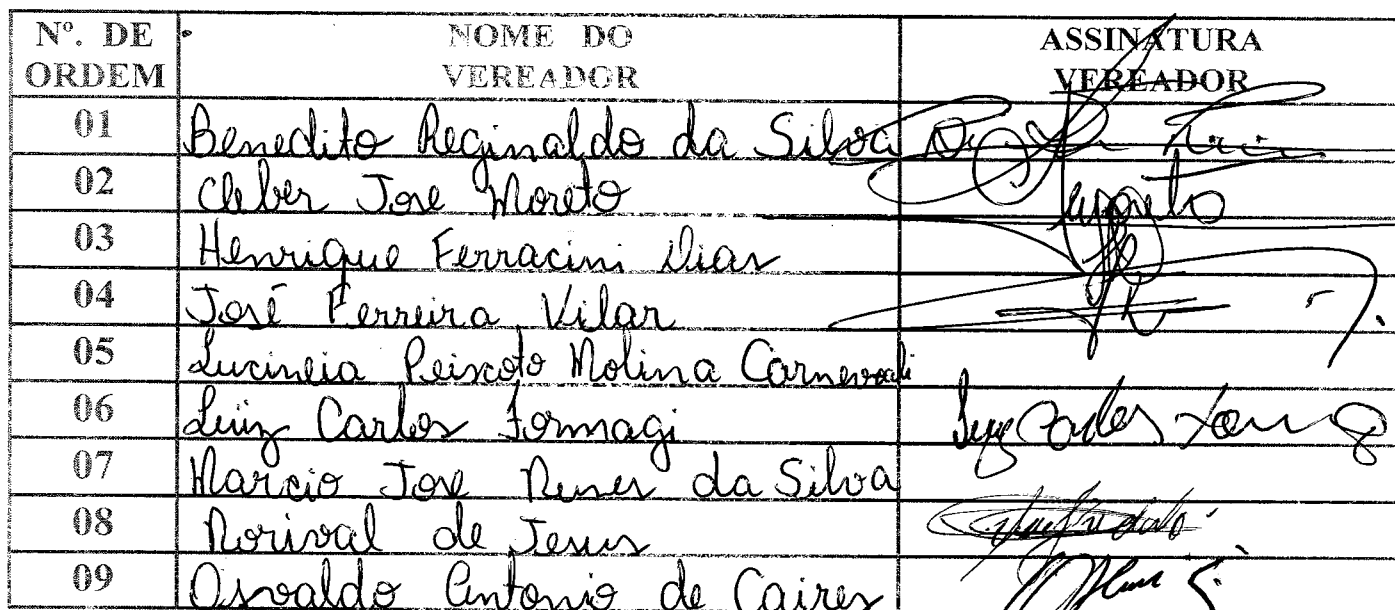 Nº. DE ORDEM NOME DO VEREADOR ASSINATURA VEREADOR
01 Benedito Reginaldo da Silva
02 Cleber Jose Moreto
03 Henrique Ferracini Dias
04 José Ferreira Vilar
05 Lucineia Peixoto Molina Carnevali
06 Luiz Carlos Formagi Luiz Carlos
07 Marcio Jose Nunes da Silva
08 Norival de Jesus
09 Osvaldo Antonio de Caires